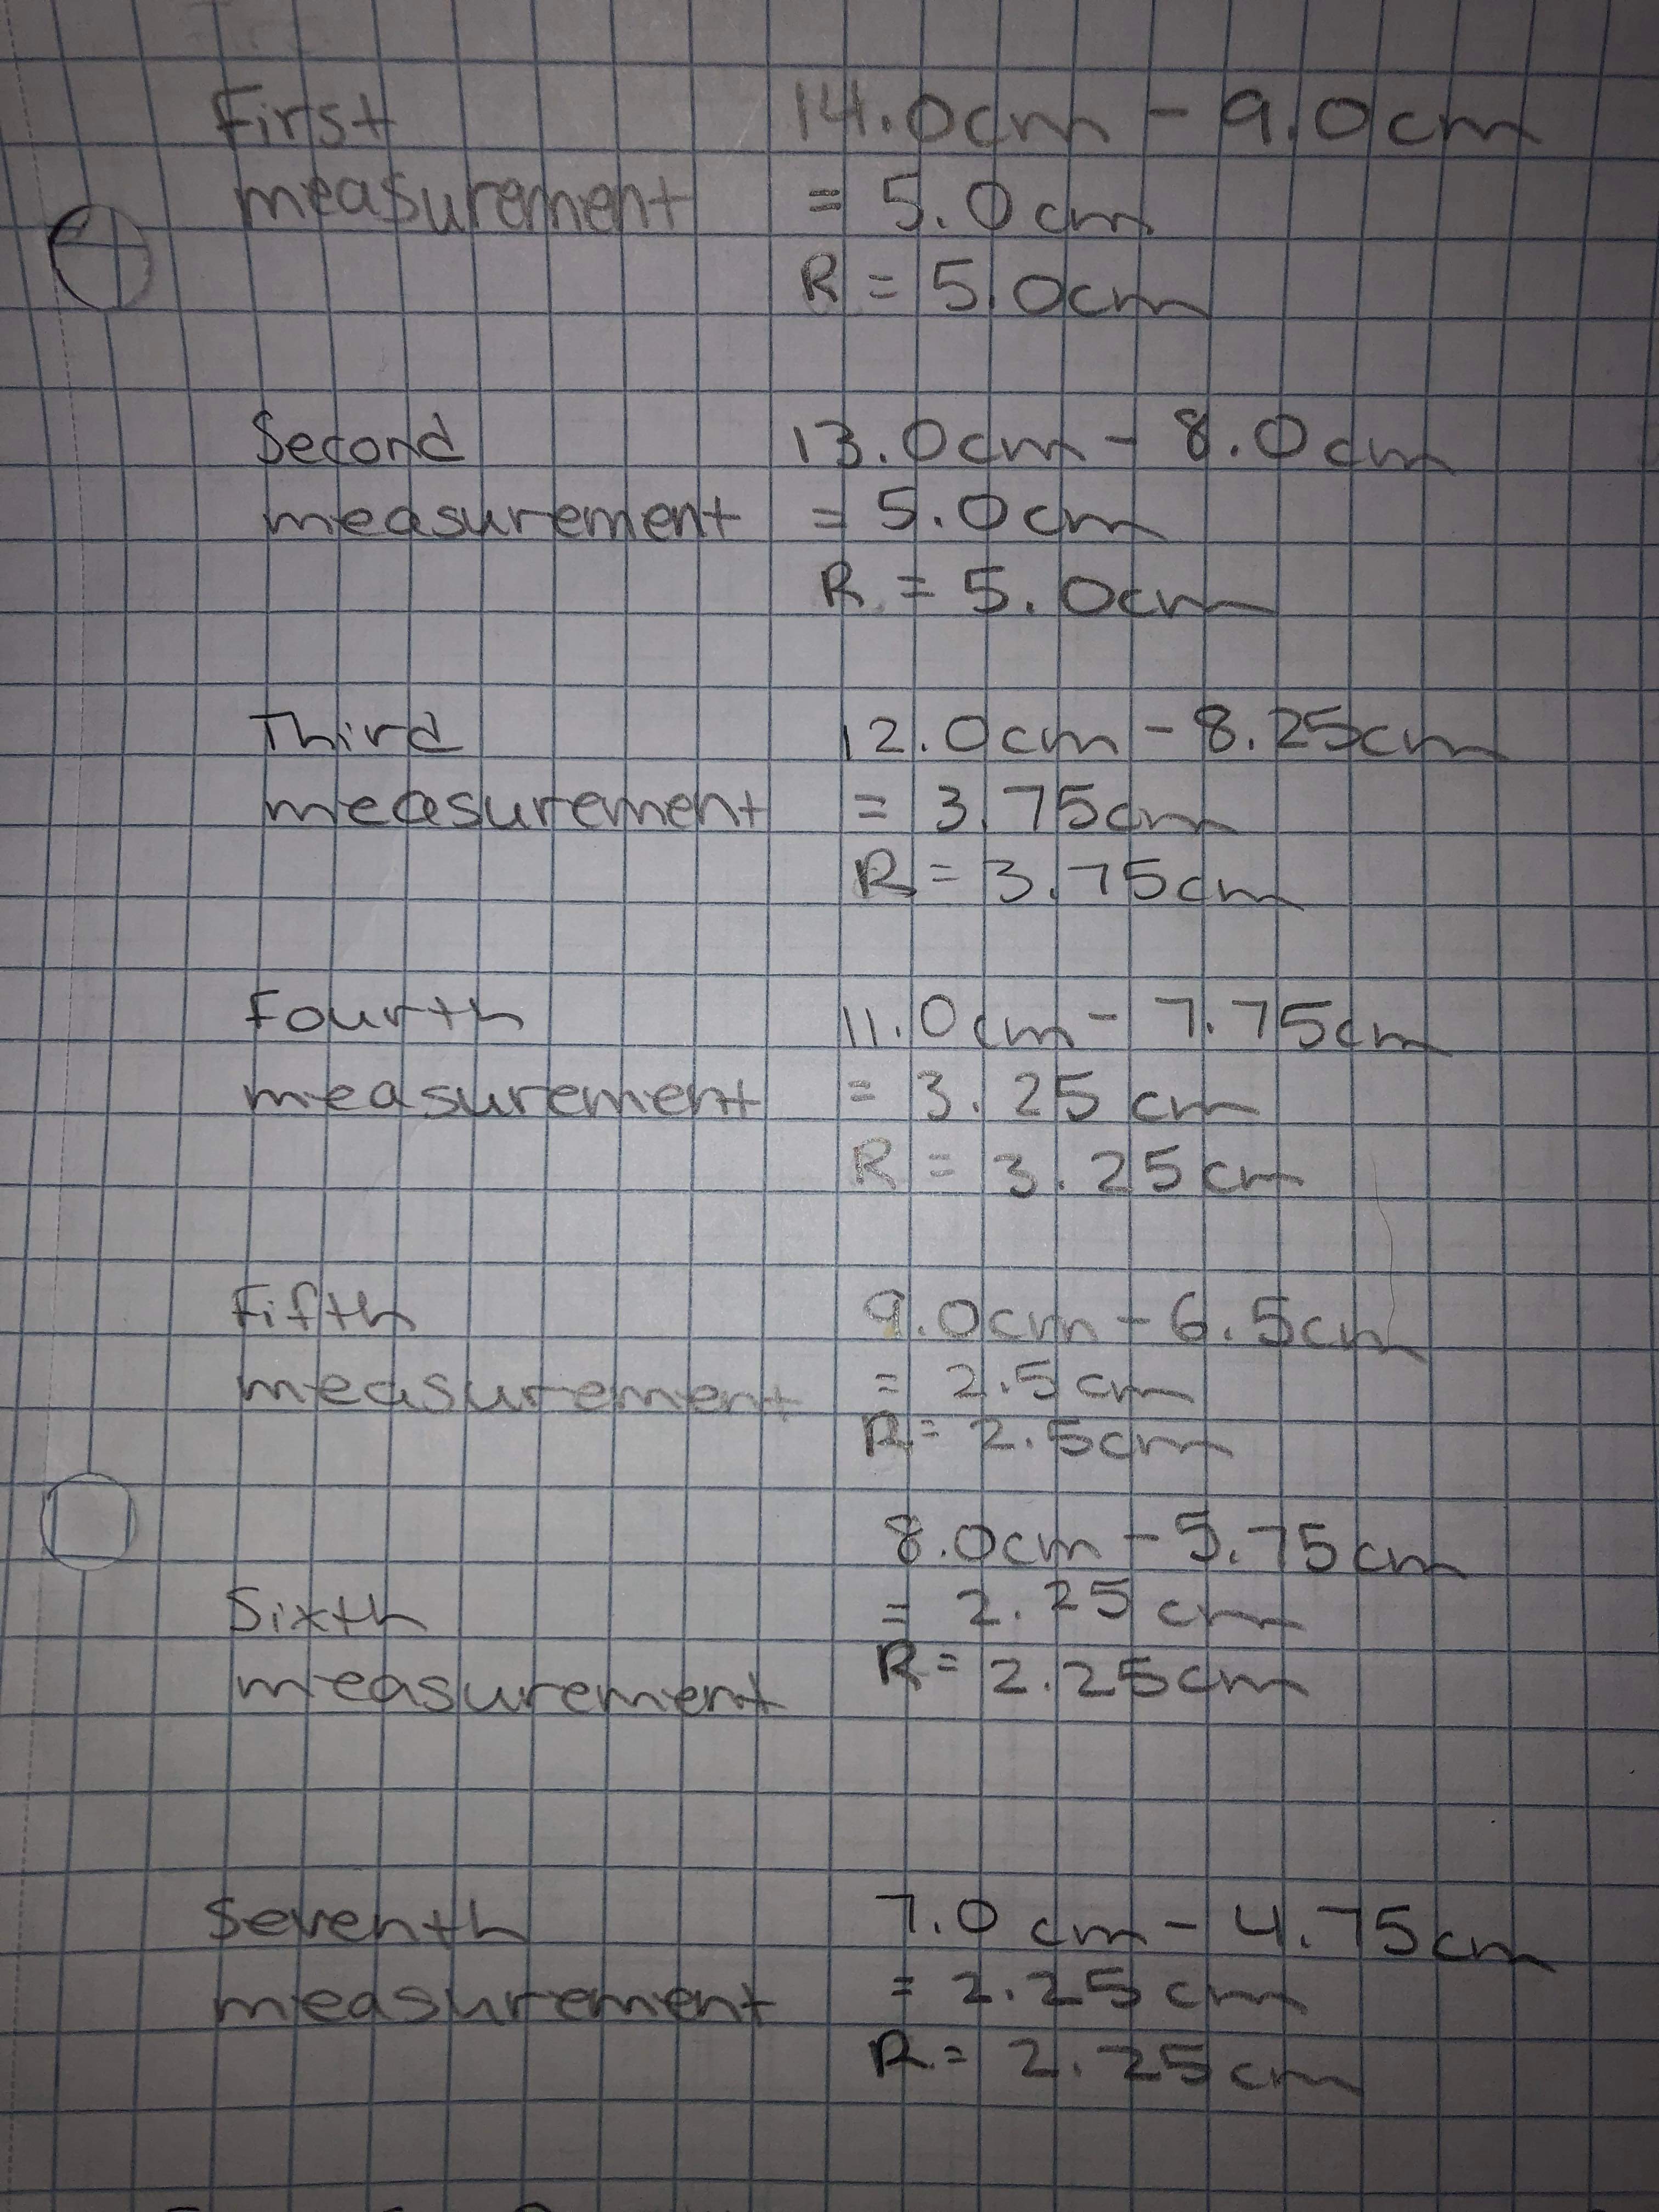 First 14.0cm - 9.0cm
measurement = 5.0cm
R = 5.0cm
Second 13.0cm - 8.0cm
measurement = 5.0cm
R = 5.0cm
Third 12.0cm - 8.25cm
measurement = 3.75cm
R = 3.75cm
Fourth 11.0cm - 7.75cm
measurement = 3.25 cm
R = 3.25cm
Fifth 9.0cm - 6.5cm
measurement = 2.5cm
R = 2.5cm
8.0cm - 5.75cm
Sixth = 2.25 cm
measurement R = 2.25cm
Seventh 7.0 cm - 4.75cm
measurement = 2.25 cm
R = 2.25cm